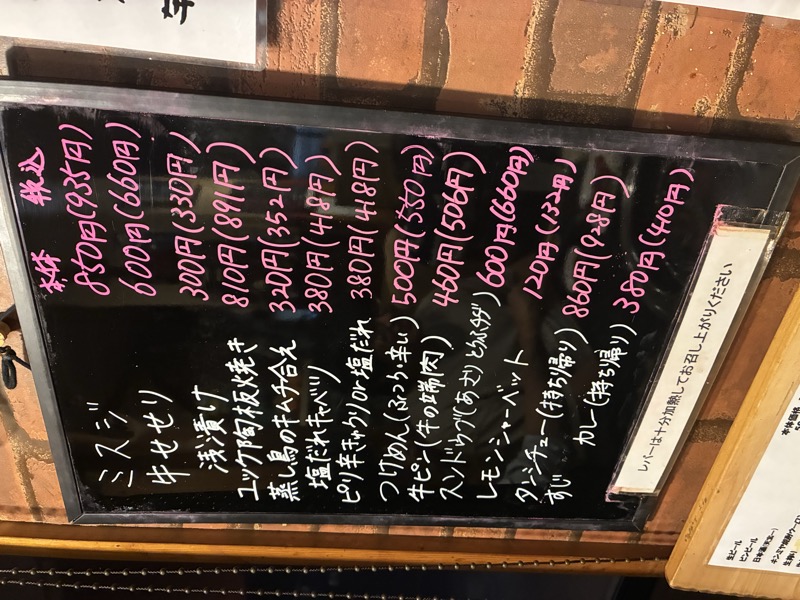 本体 税込
ミスジ 850円(935円)
牛せせり 600円(660円)
浅漬け 300円(330円)
ユッケ陶板焼き 810円(891円)
蒸し鳥のキムチ合え 320円(352円)
塩だれキャベツ 380円(418円)
ピリ辛きゅうりor塩だれ 380円(418円)
つけめん(ふつう・辛い) 500円(550円)
牛ピン(牛の端肉) 460円(506円)
スンドゥブ(あさり とうふ 600円(660円)
レモンシャーベット 120円(132円)
タンシチュー(持ち帰り) 860円(928円)
すじカレー(持ち帰り) 380円(410円)
レバーは十分加熱してお召し上がりください
本体価格
生ビール
ビンビール